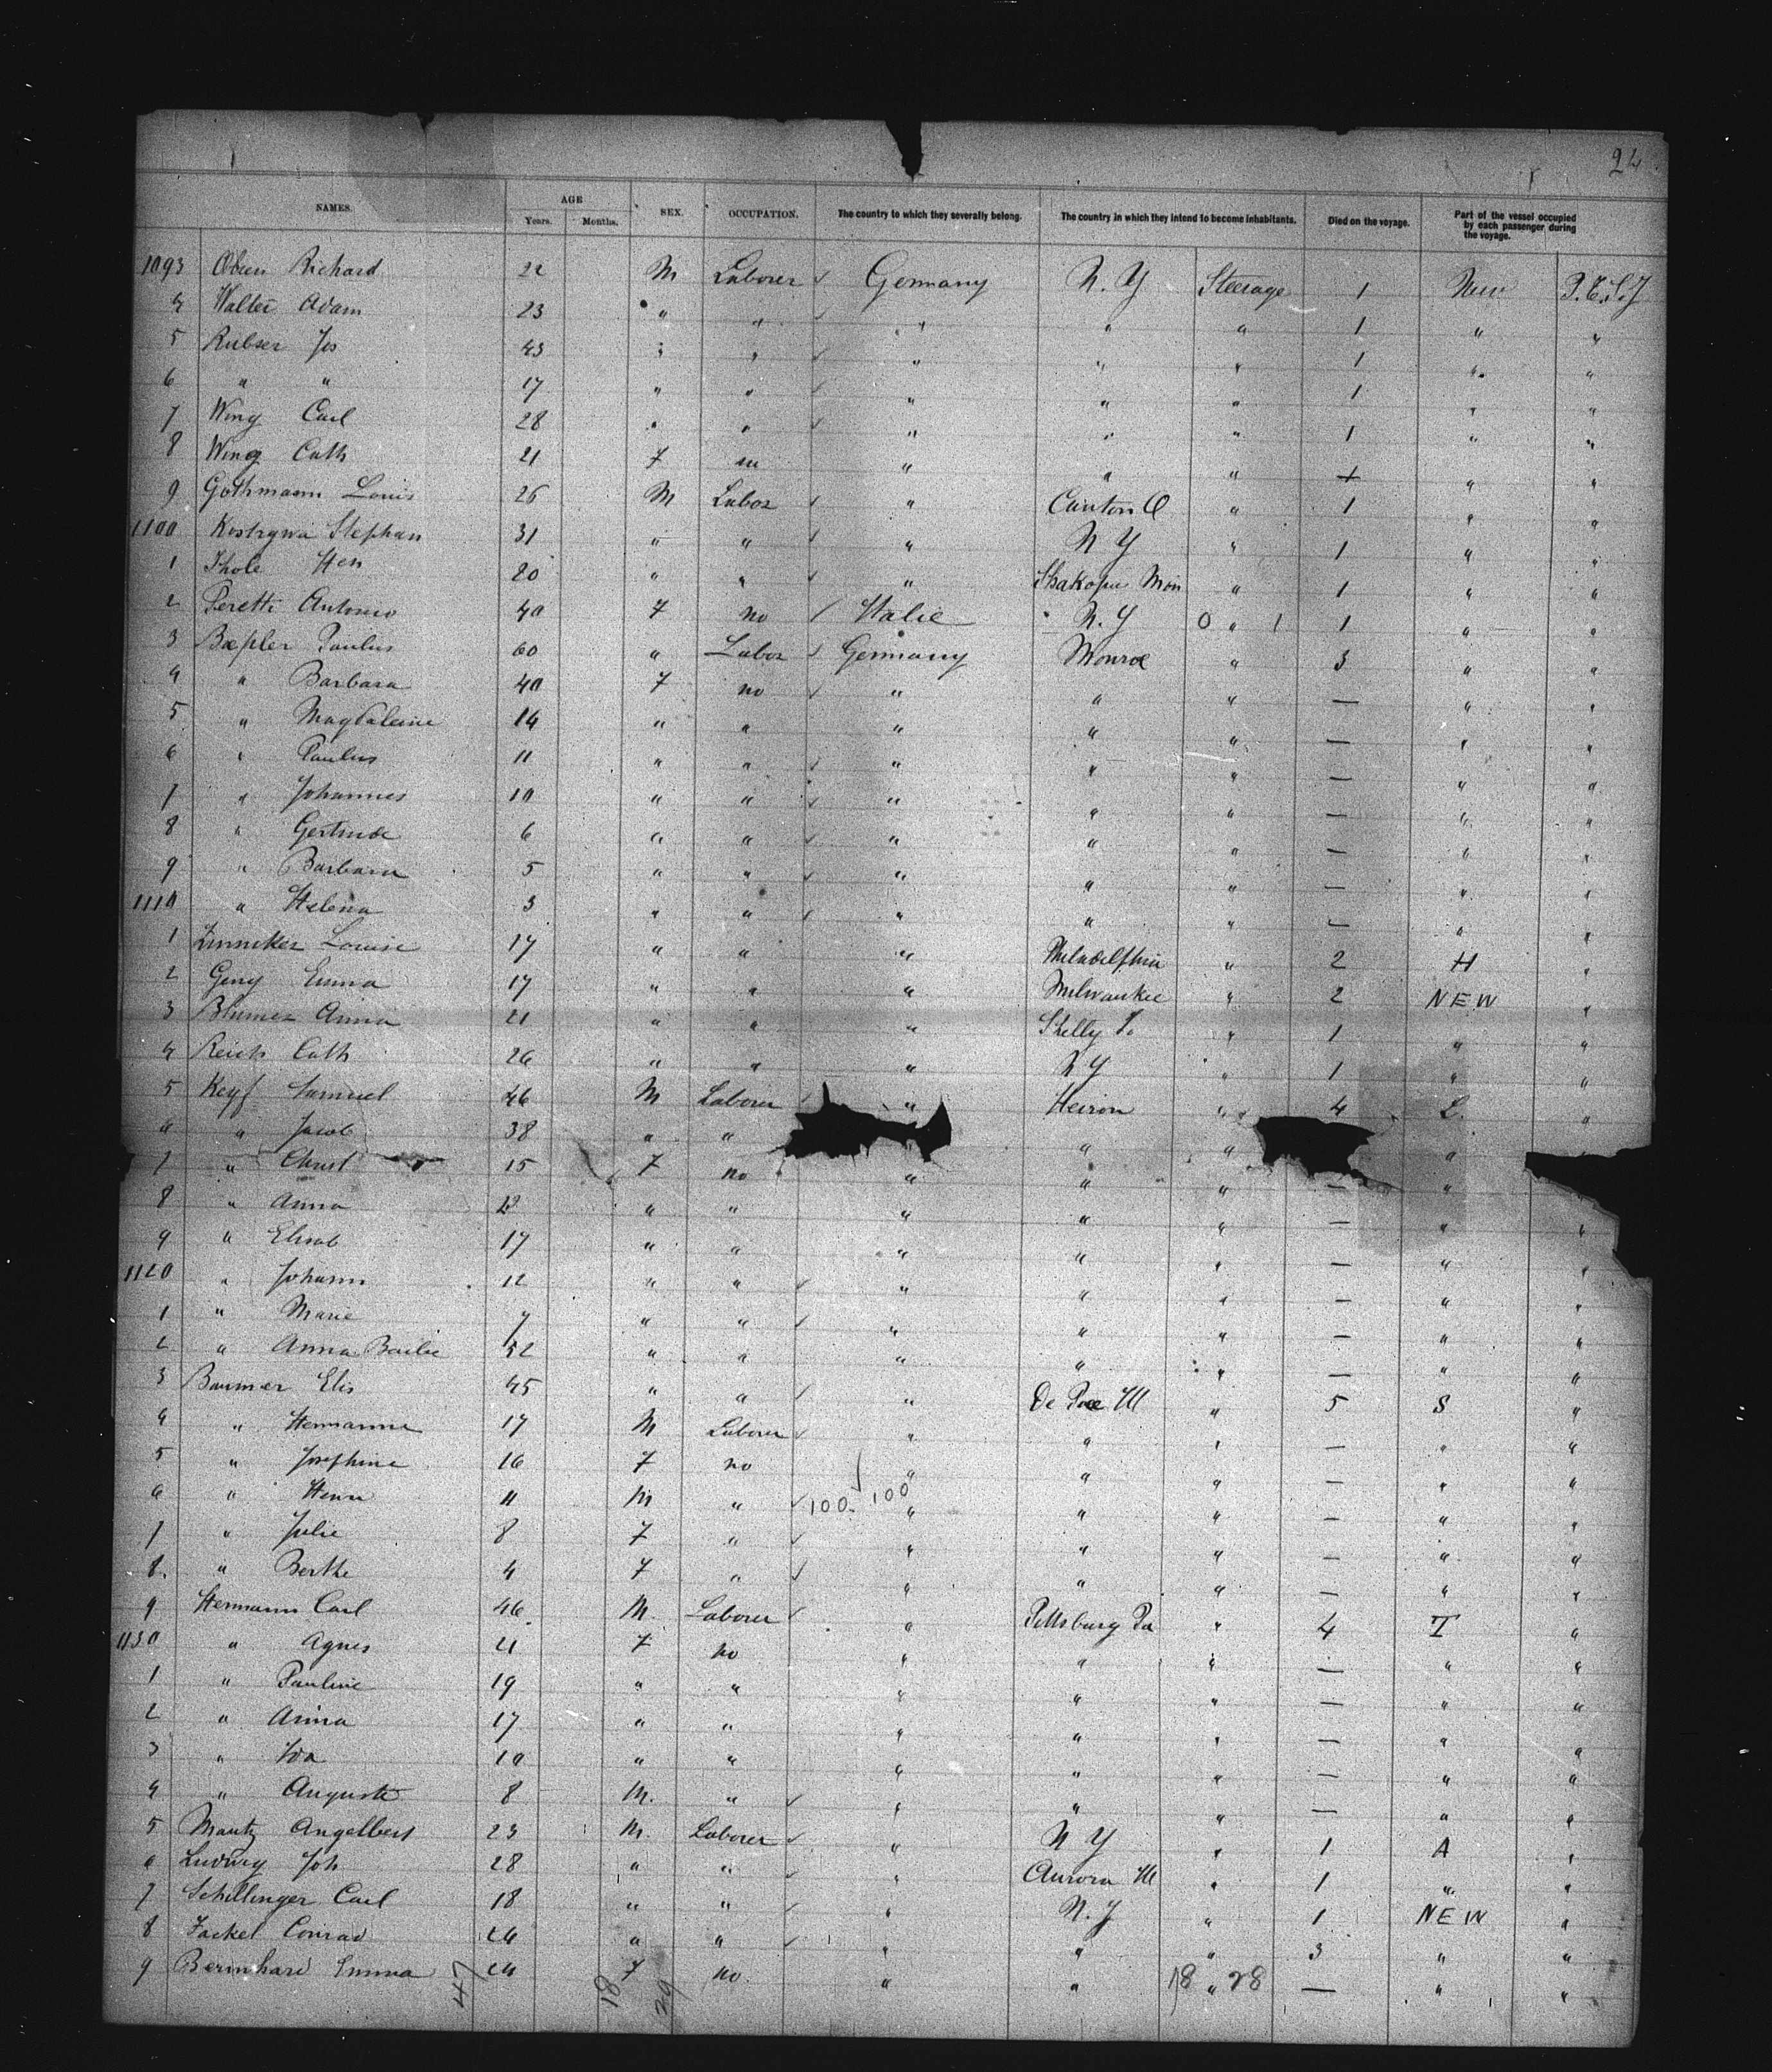 24
NAMES. AGE Years. Months. SEX. OCCUPATION. The country to which they severally belong. The country in which they intend to become inhabitants. Died on the voyage. Part of the vessel occupied by each passenger during the voyage.
1093 Richard 22 M Laborer Germany N. Y Steerage 1 New
4 Walter Adam 23 " " " " " 1 " "
5 Rubser Jos 43 " " " " " 1 " "
6 " " 17 " " " " " 1 " "
7 Wing Carl 28 " " " " " 1 " "
8 Wing Cath 21 F " " " " "
9 Gothmann Louis 26 M Labor " Canton O " 1 " "
1100 Kostrywa Stephan 31 " " " N Y " 1 " "
1 Thole Hen 20 " " " Shakopee Min " 1 " "
2 Peretti Antonio 40 F no Italie N. Y 0 " 1 1 " "
3 Bæpler Paulus 60 " Labor Germany Monroe " 3 " "
4 " Barbara 40 F no " " " — " "
5 " Magdaleine 14 " " " " " — " "
6 " Paulus 11 " " " " " — " "
7 " Johannes 10 " " " " " — " "
8 " Gertrude 6 " " " " " — " "
9 " Barbara 5 " " " " " — " "
1110 " Helena 3 " " " " " — " "
1 Zinneker Louise 17 " " " Philadelphia " 2 H "
2 Geny Emma 17 " " " Milwaukee " 2 NEW "
3 Blumer Anna 21 " " " Shelly " 1 " "
4 Reich Cath 26 " " " N Y " 1 " "
5 Keyf Samuel 46 M Laborer " Heiron " 4 L. "
6 " Jacob 38 " " " " "
7 " Christ 15 F no " " " — "
8 " Anna " " " " " — " "
9 " Elisab 17 " " " " " — " "
1120 " Johann 12 " " " " " — " "
1 " Marie 7 " " " " " — " "
2 " Anna Bailie 52 " " " " " — " "
3 Baumer Elis 45 " " " De Pue Ill " 5 S "
4 " Hermanne 17 M Laborer " " " — " "
5 " Josephine 16 F no " " " — " "
6 " Henri 11 M " 100. 100 " " " — " "
7 " Julie 8 F " " " " — " "
8. " Berthe 4 F " " " " — " "
9 Hermann Carl 46 M. Laborer " Pittsburg Pa " 4 T "
1130 " Agnes 21 F no " " " — " "
1 " Pauline 19 " " " " " — " "
2 " Anna 17 " " " " " — " "
3 " Ida 10 " " " " " — " "
4 " Auguste 8 M. " " " " — " "
5 Mautz Angelbert 23 M. Laborer " N Y " 1 A "
6 Ludwig Joh 28 " " " Aurora Ill " 1 " "
7 Schillinger Carl 18 " " " N. Y " 1 NEW "
8 Jackel Conrad 24 " " " " " 3 " "
9 Bernhard Emma 24 F no. " " " — " "
47 18 29 18 28